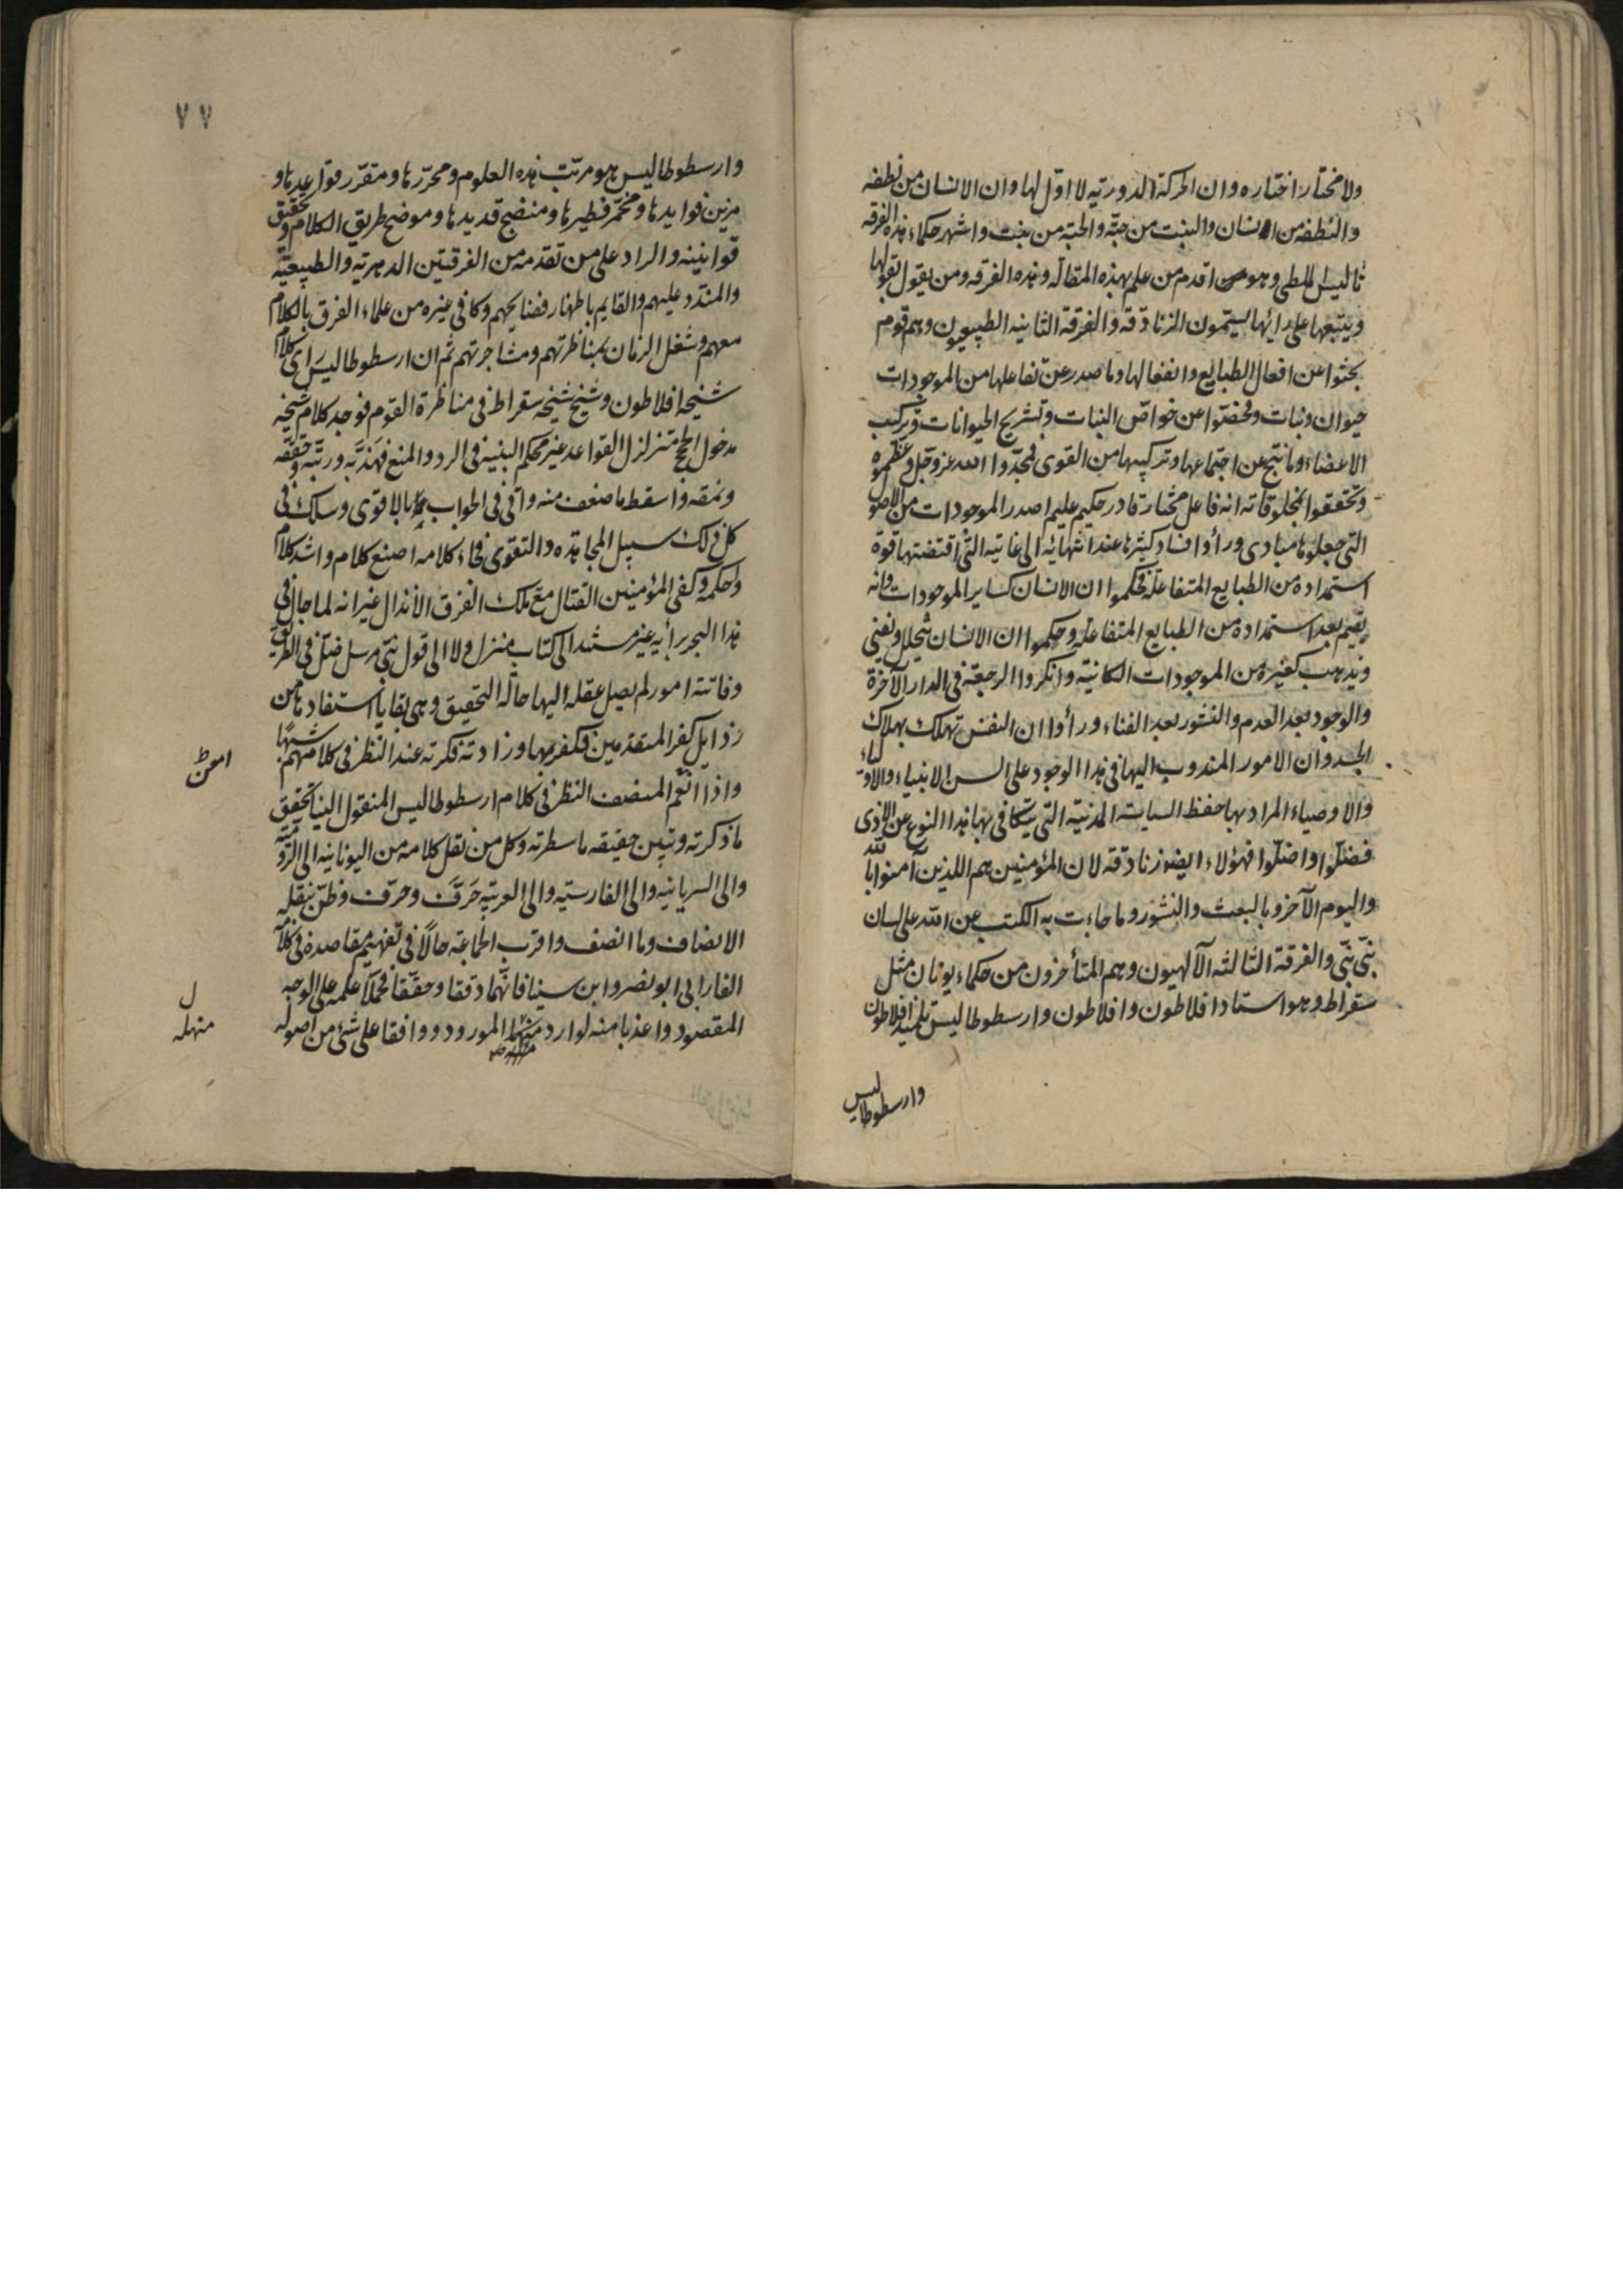 ولا مختار اختاره وان الحركة الدورية لا اول لها وان الانسان من نطفه
والنطفه من انسان والنبت من حبّه والحبّه من نبت واشهر حكماء هذه الفرقه
ثاليس الملطى وهو اقدم من علم بهذه المقاله وهذه الفرقه ومن يقول بقولها
ويتبعها على رائها يسمّون الزنادقه والفرقة الثانيه الطبيعيون وهم قوم
بحثوا عن افعال الطبايع وانفعالها وما صدر عن تفاعلها من الموجودات
حيوان ونبات وفحصوا عن خواصّ النبات وتشريح الحيوانات وتركيب
الاعضاء وما نتج عن اجتماعها وتركيبها من القوى فمجّدوا الله عز وجل وعظموه
وتحققوا بمخلوقاته انه فاعل مختار قادر حكيم عليم اصدر الموجودات من الاصول
التى جعلوها مبادى ورأوا فساد كثيرها عند انتهائه الى غايته التى اقتضتها قوة
استمداده من الطبايع المتفاعلة فحكموا ان الانسان كساير الموجودات وانه
يقيم بعد استمداده من الطبايع المتفاعلة وحكموا ان الانسان يتحلل ويفنى
ويذهب كغيره من الموجودات الكائنيّة وانكروا الرجعة فى الدار الآخرة
والوجود بعد العدم والنشور بعد الفناء ورأوا ان النفس تهلك بهلاك
الجسد وان الامور المندوب اليها فى هذا الوجود على السن الانبياء والاولياء
والاوصياء المراد بها حفظ السياسة المدنية التى يتكافى بها هذا النوع عن الاذى
فضلّوا واضلّوا فهؤلاء ايضا زنادقه لان المؤمنين هم اللذين آمنوا بالله
واليوم الآخر وبالبعث والنشور وما جاءت به الكتب عن الله على لسان
نبىّ نبىّ والفرقة الثالثه الآلهيون وهم المتأخرون من حكماء يونان مثل
سقراط وهو استاد افلاطون وافلاطون وارسطوطاليس تلميذ افلاطون
وارسطوطاليس
٧٧
وارسطوطاليس هو مرتّب هذه العلوم ومحرّرها ومقرّر قواعدها و
مزين فوايدها ومخمّر فطيرها ومنضج قديدها وموضح طريق الكلام وتحقيق
قوانينه والراد على من تقدّمه من الفرقتين الدهرية والطبيعيّة
والمندّد عليهم والقايم باظهار فضايحهم وكافى غيره من علماء الفرق بالكلام
معهم وشغل الزمان بمناظرتهم ومشاجرتهم ثم ان ارسطوطاليس رأى كلام
شيخه افلاطون وشيخ شيخه سقراط فى مناظرة القوم فوجد كلام شيخه
مدخول الحجج متزلزل القواعد غير محكم البنية فى الرد والمنع فهذّبه ورتّبه وحققه
ونمقه واسقط ما ضعف منه واتى فى الجواب بالاقوى وسلك فى
كل ذلك سبيل المجاهده والتقوى فجاء كلامه اصنع كلام واشد كلام
واحكمه وكفى المؤمنين القتال مع تلك الفرق الأنذال غير انه لما جال فى
هذا البحر برأيه غير مستند الى كتاب منزل ولا الى قول نبىّ مرسل ضلّ فى الطريق
وفاتته امور لم يصل عقله اليها حالة التحقيق وهى بقايا استفادها من
رذايل كفر المتقدمين فكفر بها وزادته فكرته عند النظر فى كلامهم شبهًا
واذا انعم المنصف النظر فى كلام ارسطوطاليس المنقول الينا تحقق
امعن
ما ذكرته وتبين حقيقه ما سطرته وكل من نقل كلامه من اليونانيه الى الروميّة
والى السريانيه والى الفارسيّه والى العربيّه حَرَّفَ وحرّف وظنّ بنقله
الانصاف وما انصف واقرب الجماعه حالًا فى تفهيم مقاصده فى كلامه
الفارابى ابو نصر وابن سينا فانّهما دققا وحقّقا فحملا علمه على الوجه
المقصود واعذبا منه لوارد منهله المورود ووافقا على شىء من اصوله
منهله